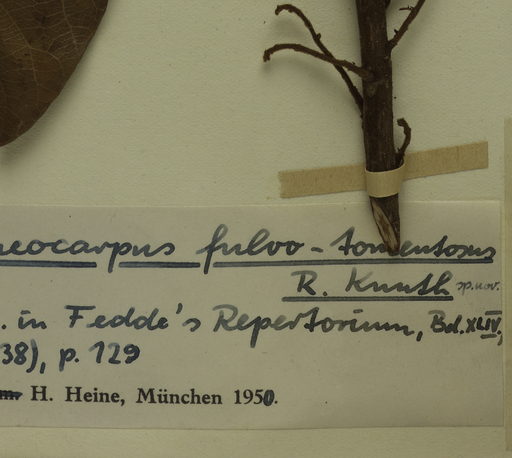 neocarpus fulvo-tomentosus
R. Knuth sp. nov.
. in Fedde's Repertorium, Bd. XLIV,
38), p. 129
m. H. Heine, München 1950.